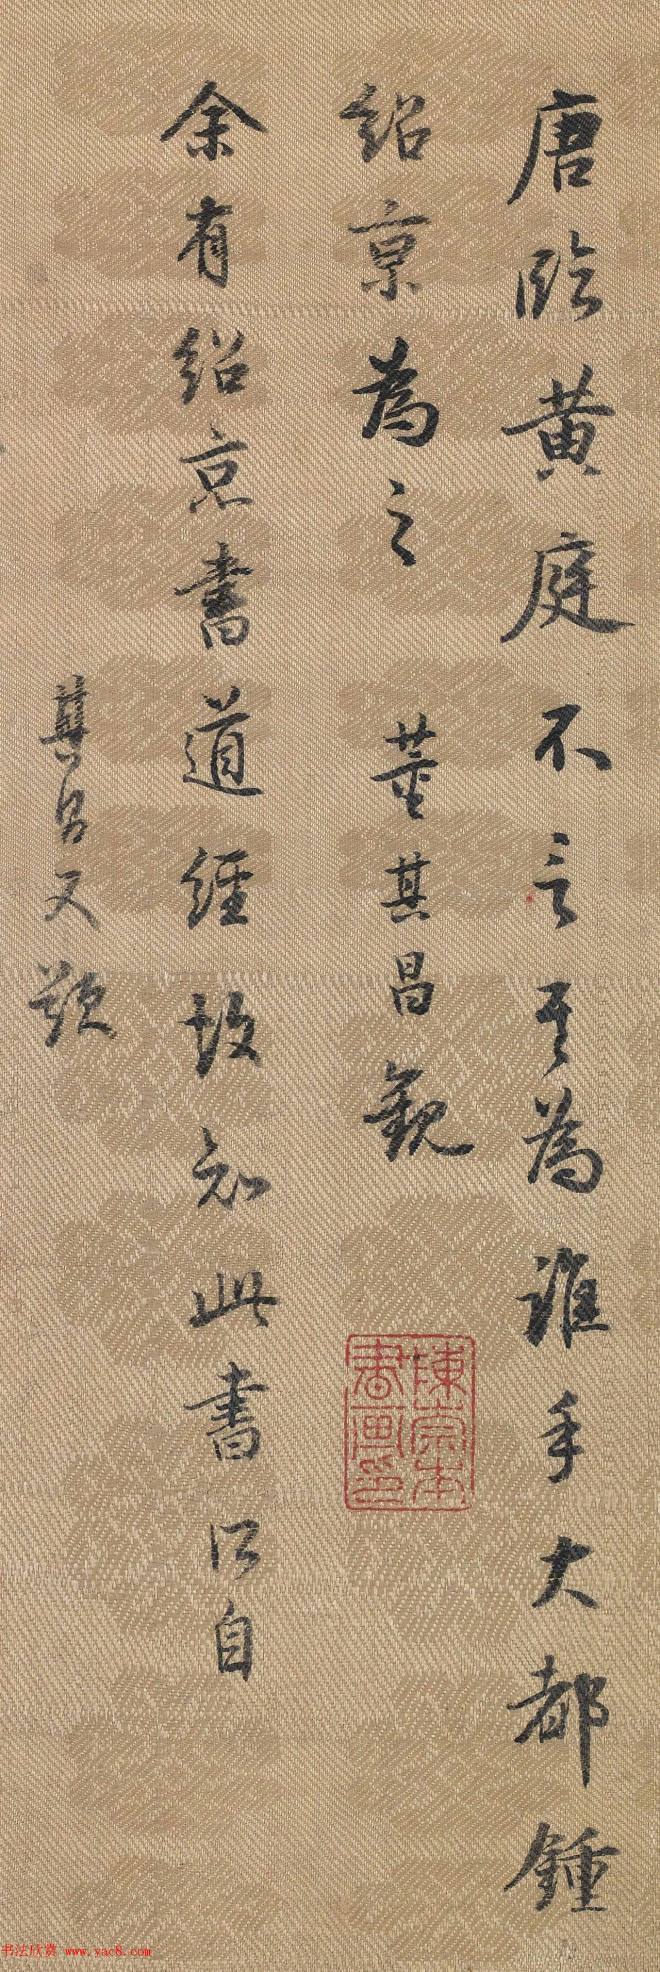 唐臨黃庭不言其為誰手大都鍾
紹京為之 董其昌觀
陳崇本
書画印
余有紹京書道經故知此書所自
其昌又題
书法欣赏 www.yac8.com